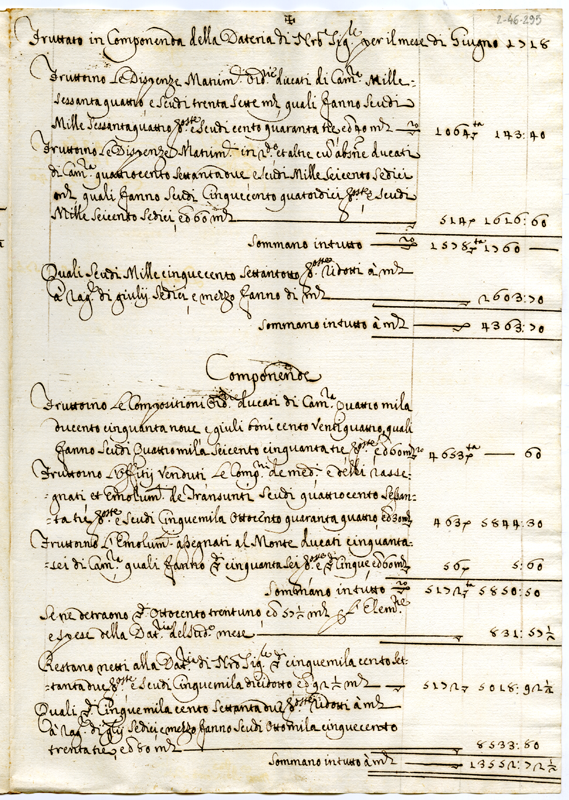 2-46-295
Fruttato in Componenda della Dateria di Nro Sigre per il mese di Giugno 1718
Fruttorno Le Dispenze Matrim. ducati di Cama Mille
sessanta quattro, e scudi trenta sette mta quali fanno scudi
Mille sessantaquattro e scudi cento quaranta tre ed 40 mta 1064 143:40
Fruttorno Le Dispenze Matrim. in et altre ducati
di Cama quattrocento settanta due e scudi Mille seicento sedici
mta quali fanno scudi Cinquecento quatordici e scudi
Mille seicento sedici, ed 60 mta 514 1616:60
Sommano in tutto 1578 1760
Quali scudi Mille cinquecento settantotto ridotti à mta
à rag.e di giulij sedici, e mezzo fanno di mta 2603:70
Sommano in tutto à mta 4363:70
Componende
Fruttorno Le Compositioni ducati di Cama quattro mila
ducento cinquanta nove e giuli boni cento venti quattro, quali
fanno scudi quattro mila seicento cinquanta tre ed 60 mta 4653 60
Fruttorno Venduti Le e delli rasse-
gnati et Emolum. de Transunti scudi quattrocento sessan-
ta tre e scudi Cinquemila Ottocento quaranta quattro ed 30 mta 463 5844:30
Fruttorno L'Emolum. assegnati al Monte ducati cinquanta-
sei di Cama quali fanno cinquanta sei e Cinque ed 60 mta 56 5:60
Sommano in tutto 5172 5850:50
Se ne detraono Ottocento trentuno ed 57½ mta
e spese della Datria del mese 831:57½
Restano netti alla Datria di Nro Sigre cinquemila cento set-
tanta due e scudi Cinquemila dieciotto ed 92½ mta 5172 5018:92½
Quali Cinquemila cento settanta due ridotti à mta
à rag.e di giulij sedici e mezzo fanno scudi Ottomila cinquecento
trenta tre, ed 80 mta 8533:80
Sommano in tutto à mta 13552:72½